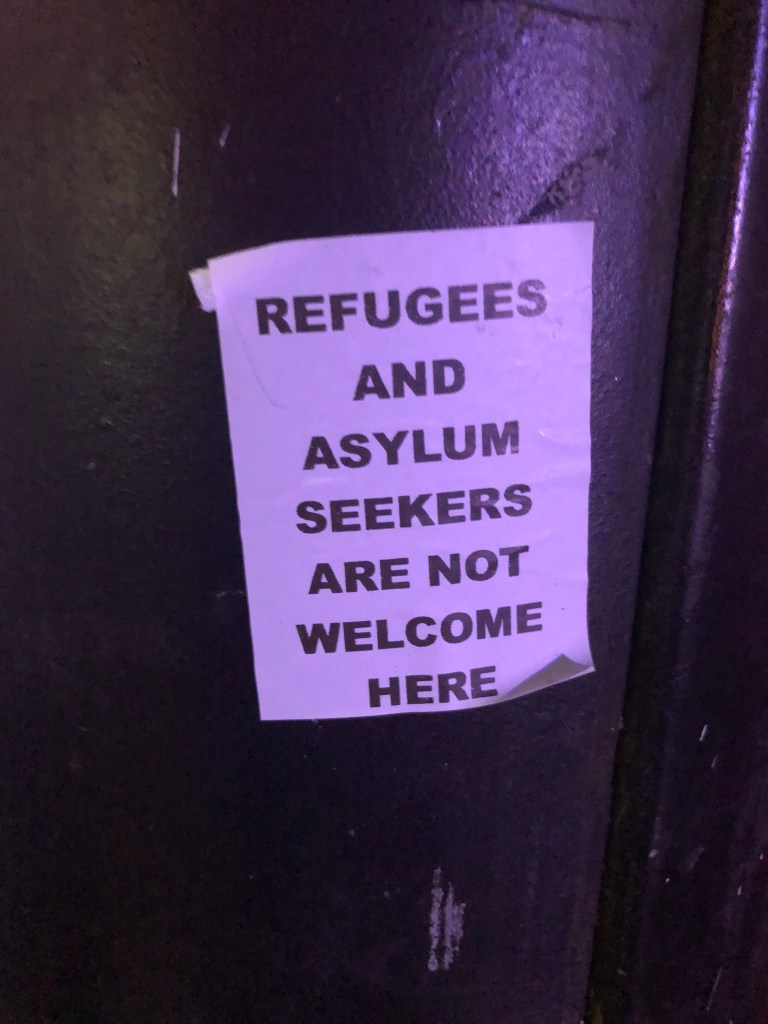 REFUGEES
AND
ASYLUM
SEEKERS
ARE NOT
WELCOME
HERE